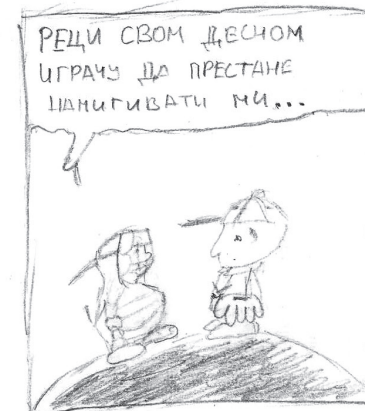 РЕЦИ СВОМ ДЕСНОМ
ИГРАЧУ ДА ПРЕСТАНЕ
НАМИГИВАТИ МИ...